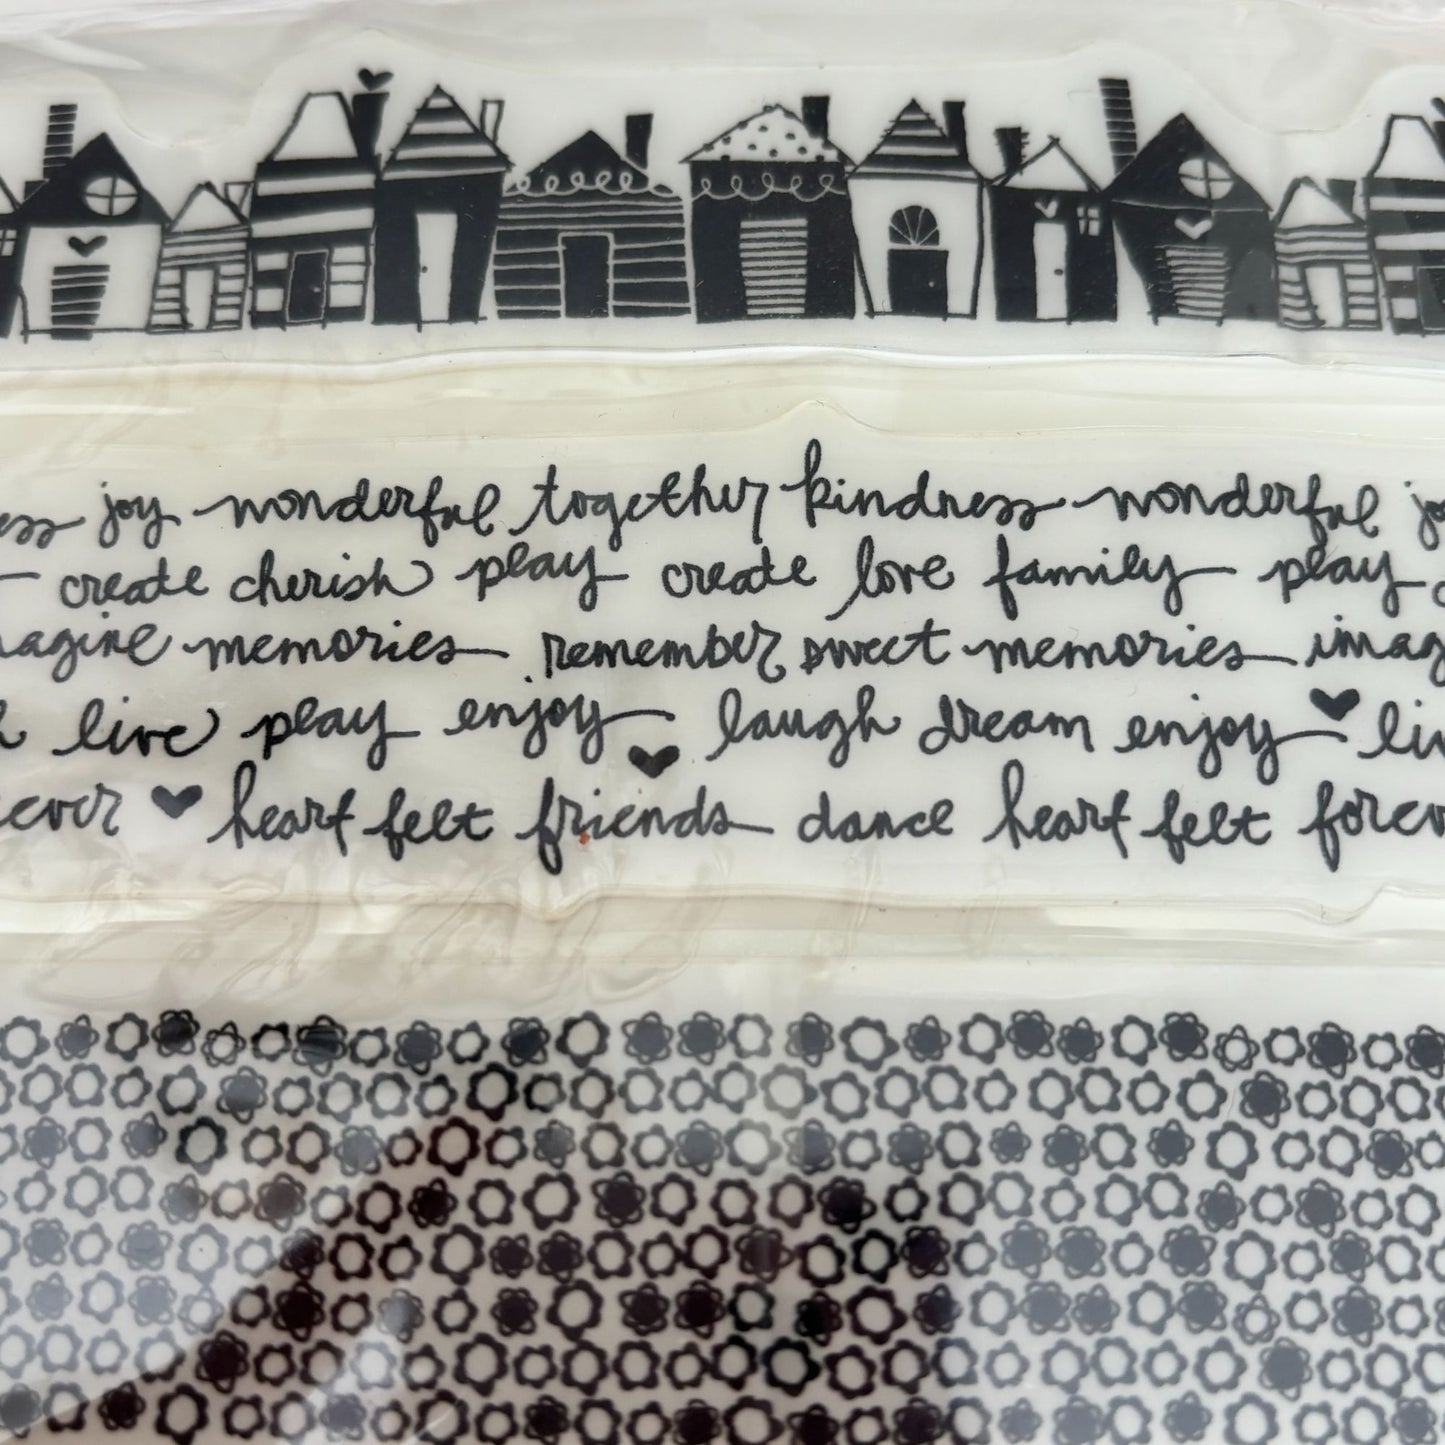 ess joy wonderful together kindness wonderful jo
create cherish play create love family play
magine memories remember sweet memories imag
h live play enjoy laugh dream enjoy liv
ever heart felt friends dance heart felt forev